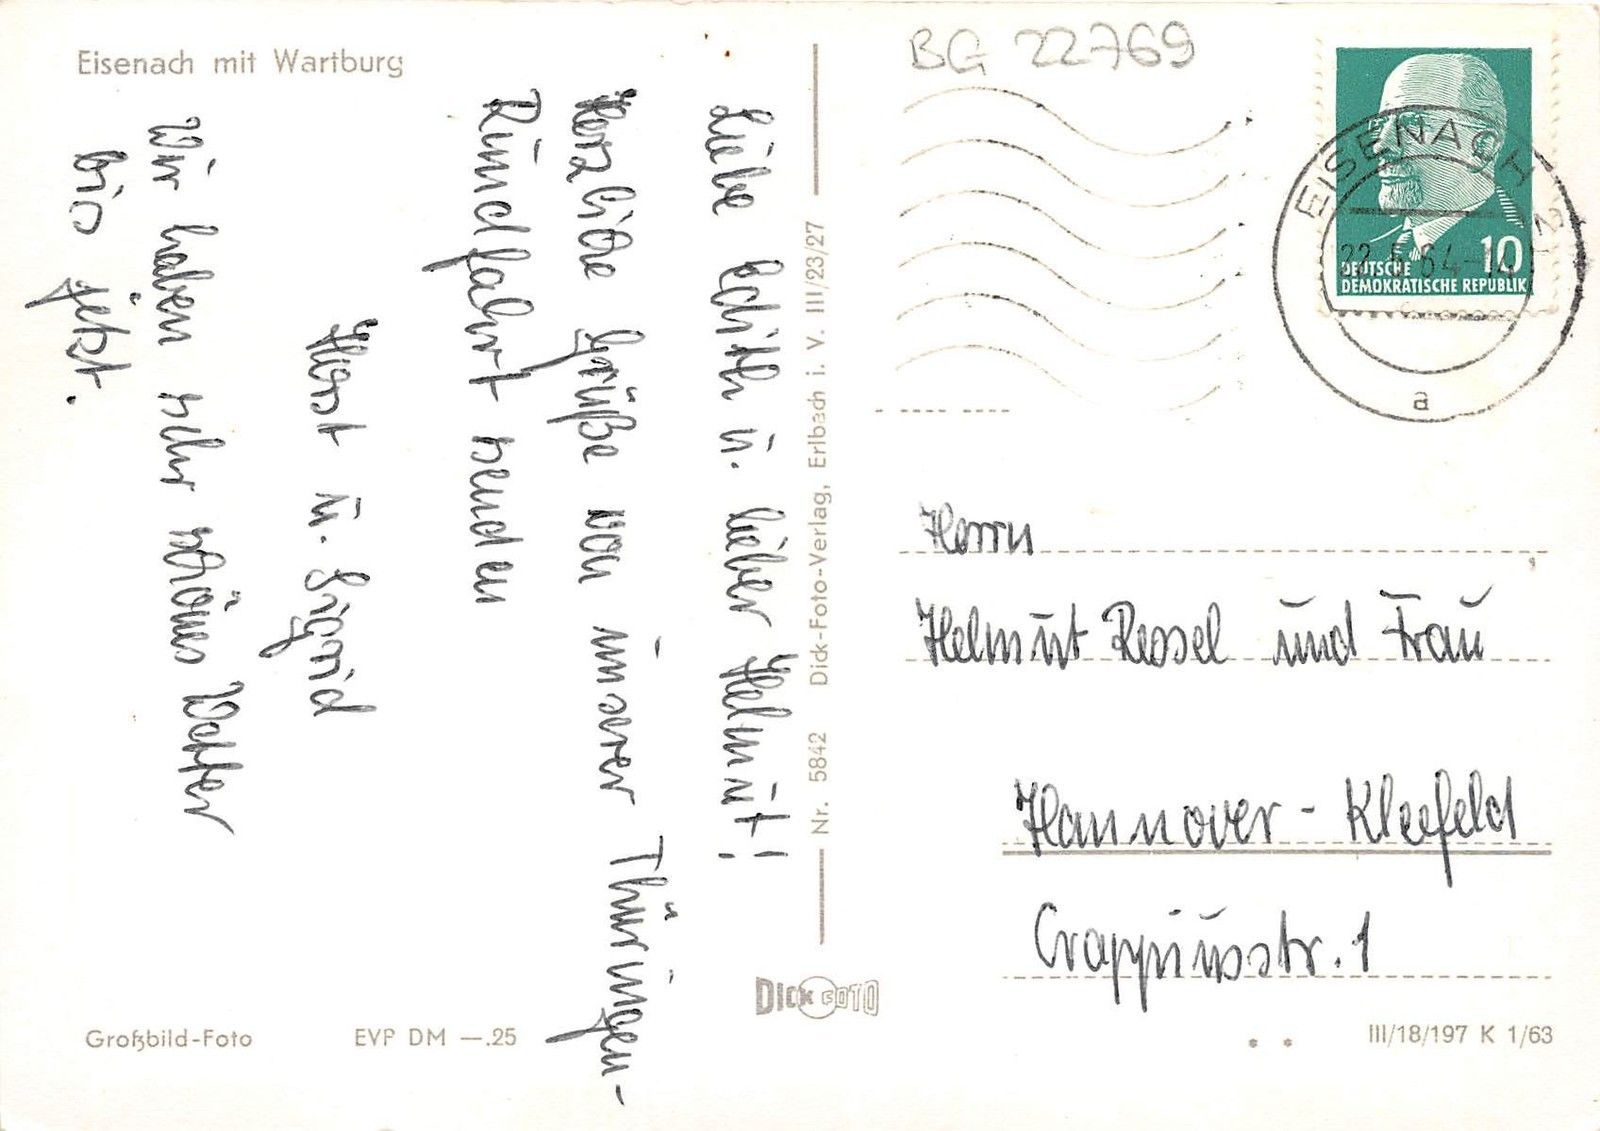 Eisenach mit Wartburg
Liebe Edith u. lieber Helmut!
Herzliche Grüße von unserer Thüringen-
Rundfahrt senden
Horst u. Sigrid
Wir haben sehr schönes Wetter
bis jetzt.
Großbild-Foto
EVP DM —.25
Nr. 5842 Dick-Foto-Verlag, Erlbach i. V. III/23/27
DICK FOTO
BG 22769
EISENACH 2
22.5.64-14
a
10
DEUTSCHE
DEMOKRATISCHE REPUBLIK
Herrn
Helmut Ressel und Frau
Hannover - Kleefeld
Crappiusstr. 1
III/18/197 K 1/63